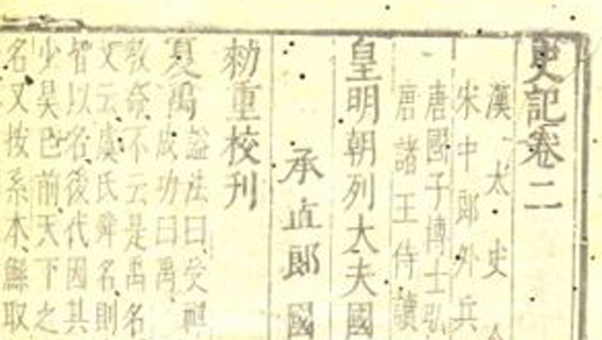 史記卷二
漢太史令
宋中郎外兵
唐國子博士弘
唐諸王侍讀
皇明朝列大夫國
承直郎國
勑重校刊
夏禹謚法曰受禪
成功曰禹
教命不云是禹名
文云虞氏舜名則
智以名後代因其
少昊已前天下之
名又按系本鯀取